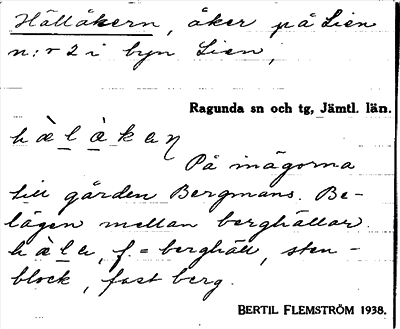 Hällåkern, åker på Lien
n:r 2 i byn Lien,
Ragunda sn och tg, Jämtl. län.
hàlàkeη
På inägorna
till gården Bergmans. Be-
lägen mellan berghällar.
hàle, f. = berghäll, sten-
block, fast berg.
BERTIL FLEMSTRÖM 1938.